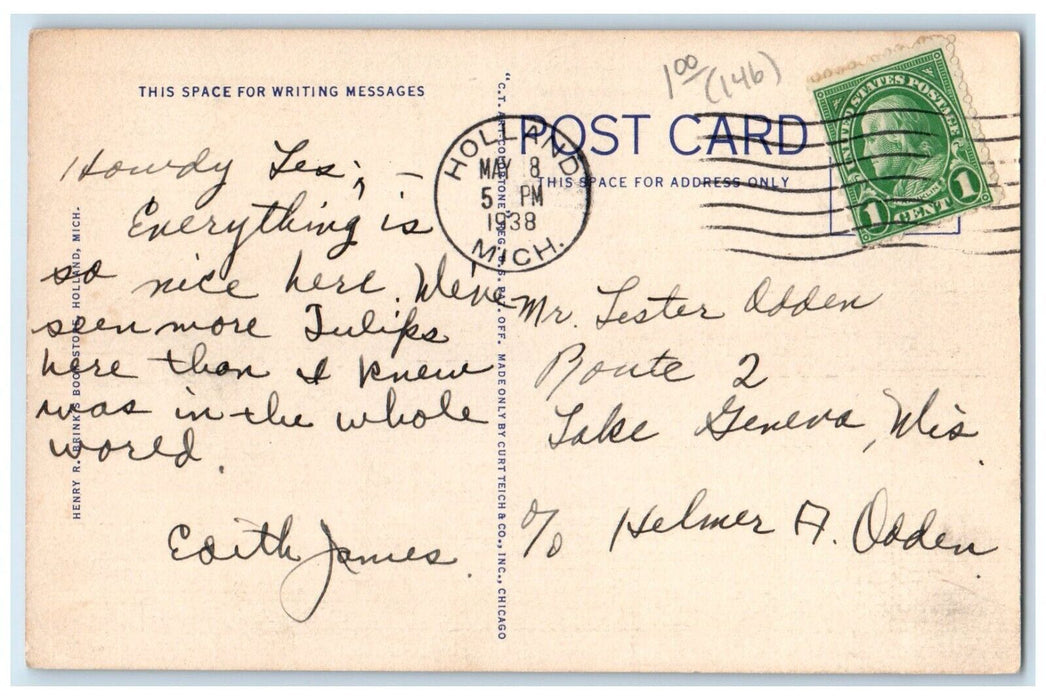 THIS SPACE FOR WRITING MESSAGES
Howdy Les; –
Everything is
so nice here. We've
seen more Tulips
here than I knew
was in the whole
world.
Edith James.
HENRY R. BRINK'S BOOKSTORE, HOLLAND, MICH.
"C.T. ART-COLORTONE" REG. U.S. PAT. OFF. MADE ONLY BY CURT TEICH & CO., INC., CHICAGO
1 00/ (146)
POST CARD
THIS SPACE FOR ADDRESS ONLY
HOLLAND
MAY 8
5 PM
1938
MICH.
UNITED STATES POSTAGE
FRANKLIN
1 CENT 1
Mr. Lester Odden
Route 2
Lake Geneva, Wis.
c/o Helmer A. Odden.